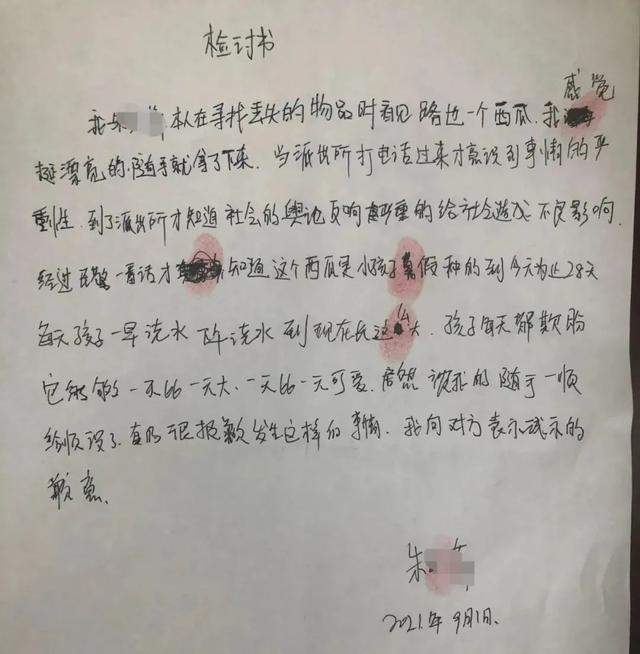 检讨书
感觉
我朱 本人在寻找丢失的物品时看见路边一个西瓜.我
挺漂亮的.随手就拿了下来.当派出所打电话过来才意识到事情的严
重性.到了派出所才知道社会的舆论反响 严重的给社会造成不良影响.
经过民警一番话才 知道这个西瓜是小孩子暑假种的到今天为止28天
每天孩子一早浇水 下午浇水到现在长这么大.孩子每天都期盼
它能够一天比一天大.一天比一天可爱.居然被我的随手一顺
给顺没了.真的很抱歉发生这样的事情.我向对方表示诚示的
歉意.
朱
2021.年9月1日.